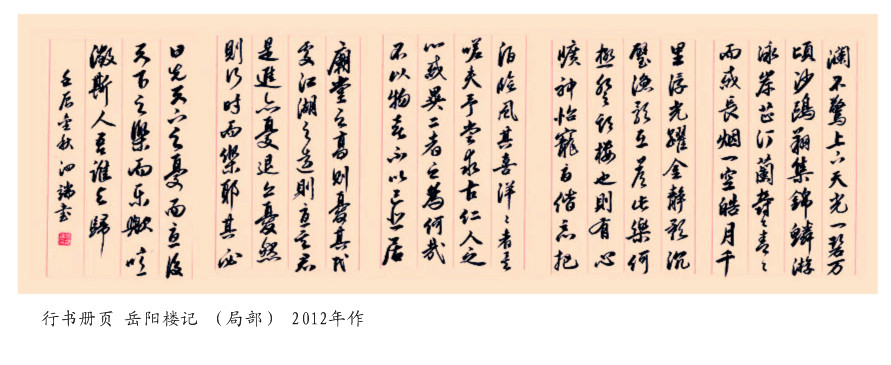 澜不驚上下天光一碧万
頃沙鷗翔集錦鱗游
泳岸芷汀蘭郁々青々
而或長烟一空皓月千
里浮光耀金静影沉
璧漁歌互答此樂何
極登斯樓也則有心
曠神怡寵辱偕忘把
酒临風其喜洋々者矣
嗟夫予嘗求古仁人之
心或異二者之為何哉
不以物喜不以己悲居
廟堂之高則憂其民
处江湖之远則憂其君
是進亦憂退亦憂然
則何时而樂耶其必
曰先天下之憂而憂後
天下之樂而乐歟噫
微斯人吾谁与歸
壬辰金秋
行书册页 岳阳楼记 (局部) 2012年作